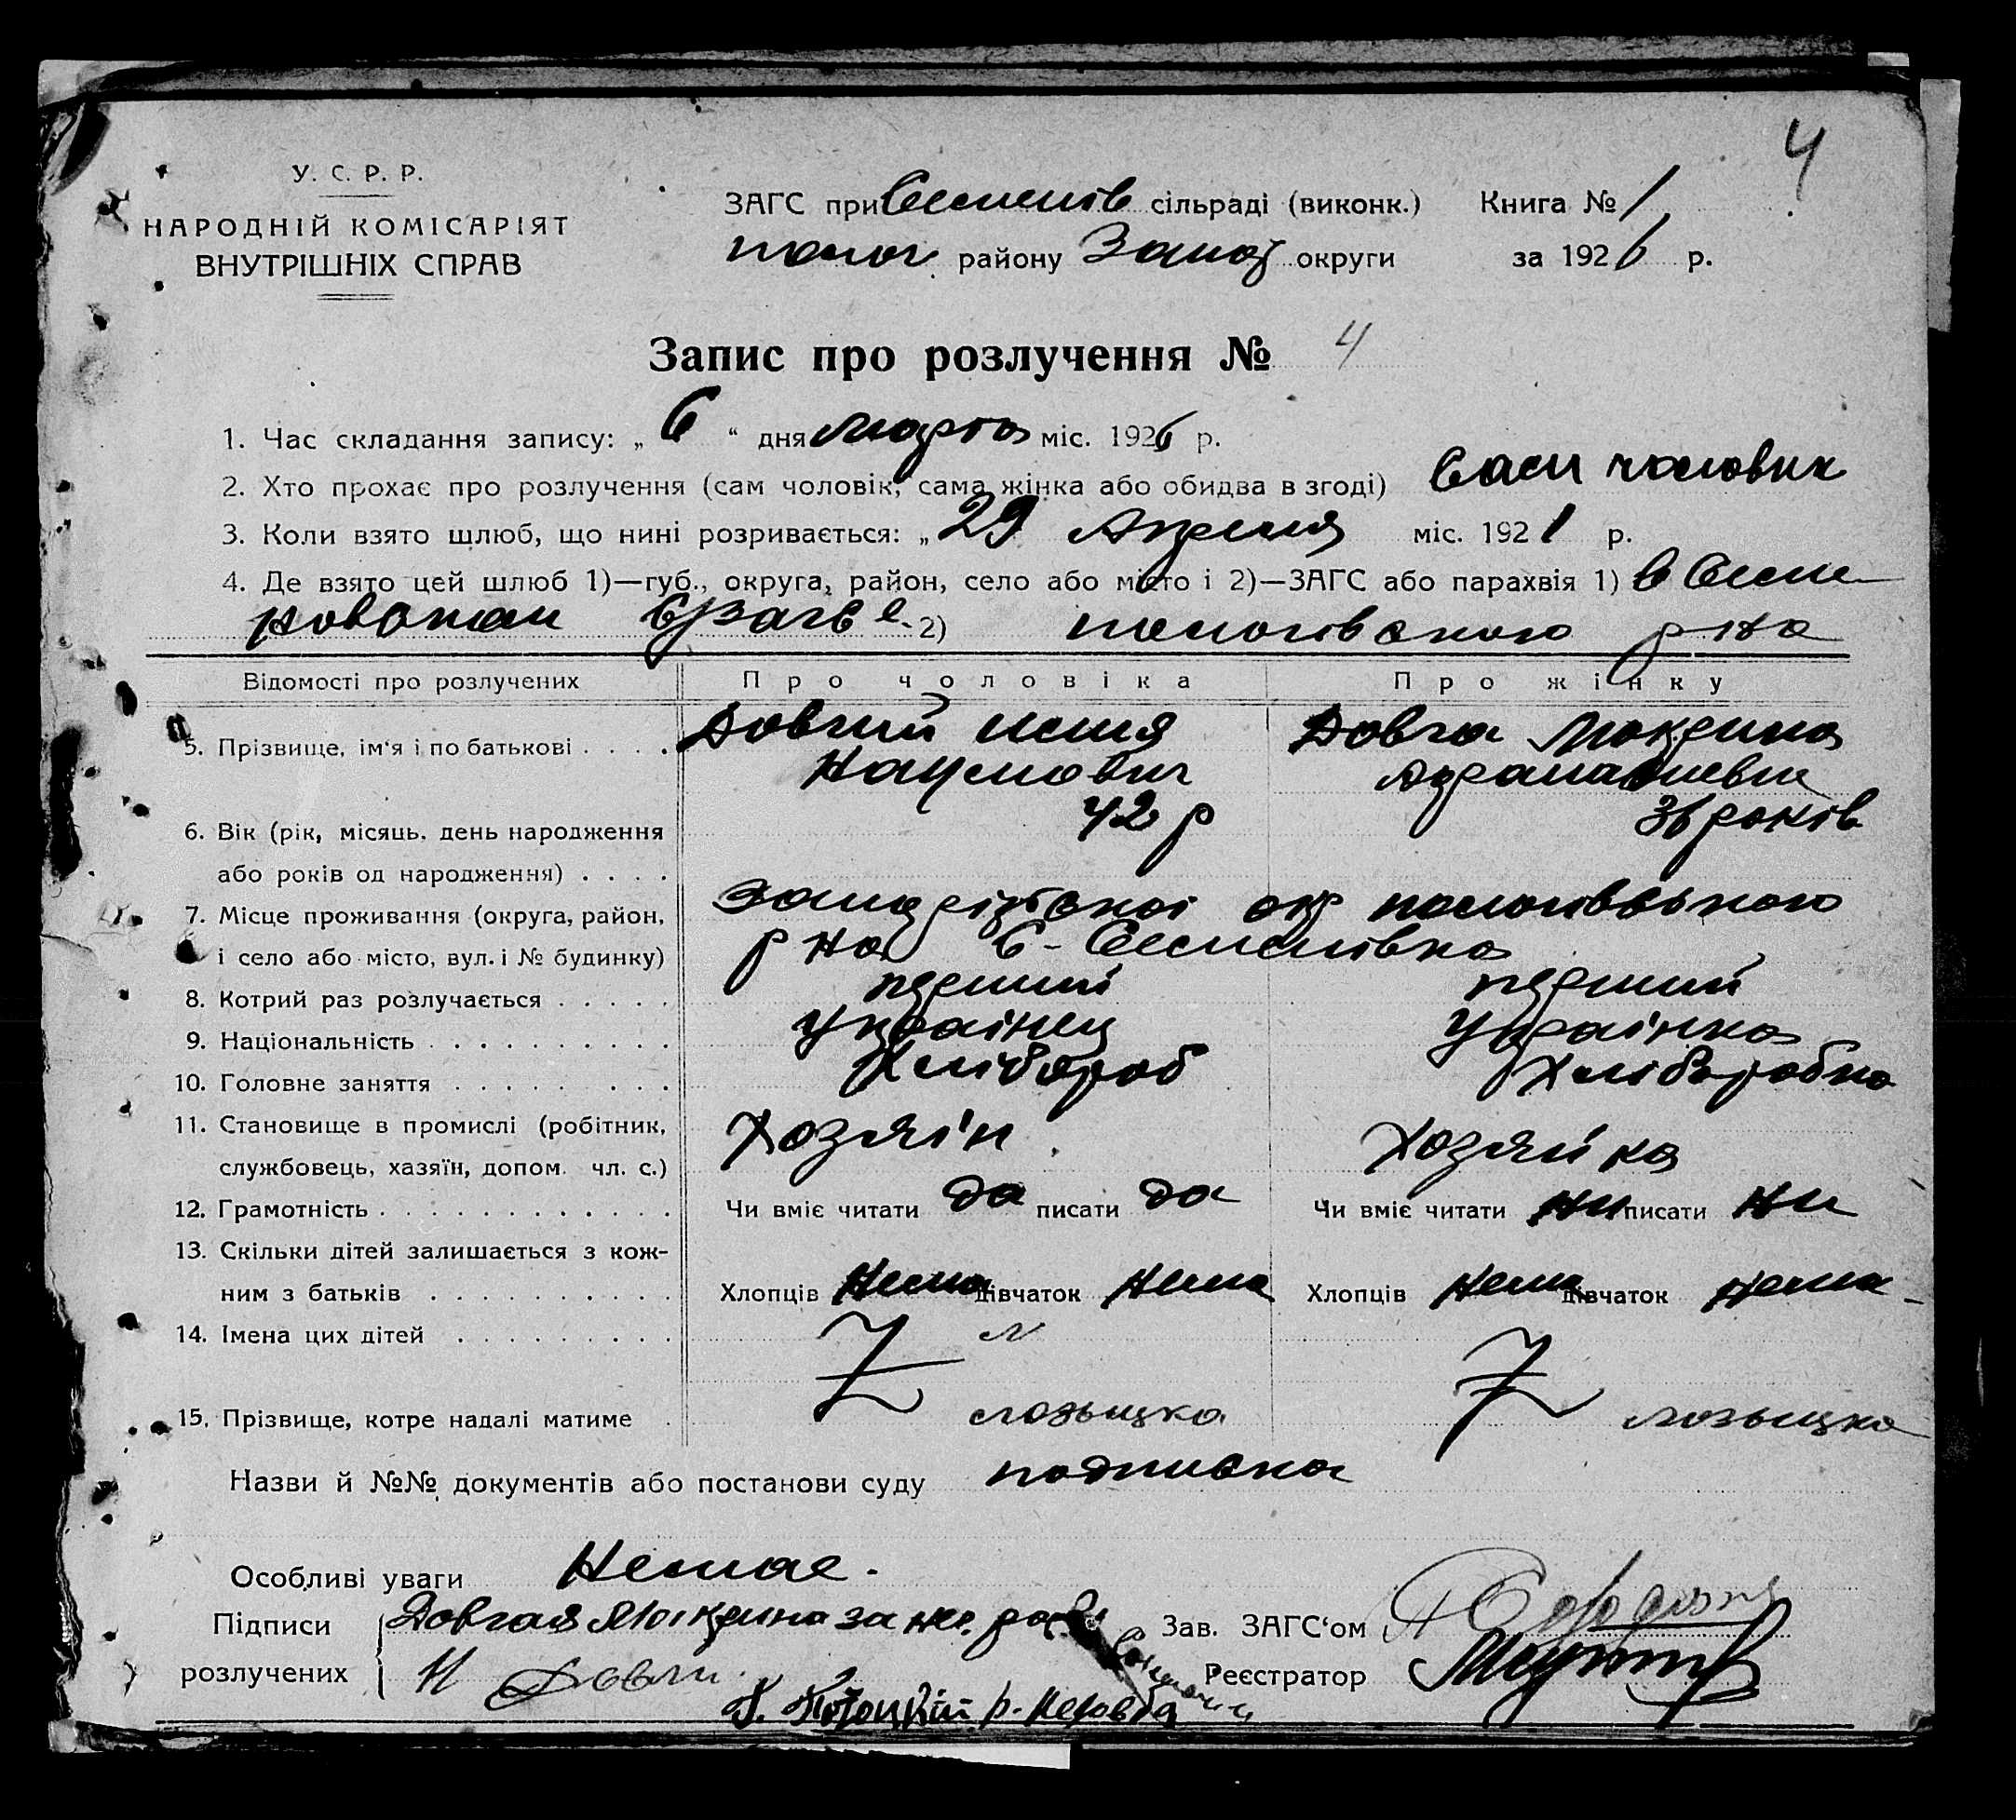 4
У. С. Р. Р.
НАРОДНІЙ КОМІСАРІЯТ
ВНУТРІШНІХ СПРАВ
ЗАГС при Семенів сільраді (виконк.) Книга № 1
полог. району Запор округи за 1926 р.
Запис про розлучення № 4
1. Час складання запису: „ 6 “ дня марта міс. 1926 р.
2. Хто прохає про розлучення (сам чоловік, сама жінка або обидва в згоді) Сам чоловик
3. Коли взято шлюб, що нині розривається: „ 29 Апреля міс. 1921 р.
4. Де взято цей шлюб 1)—губ., округа, район, село або місто і 2)—ЗАГС або парахвія 1) в Семе
новском 2) пологівского р-на
Відомості про розлучених Про чоловіка Про жінку
5. Прізвище, ім'я і по батькові . . . . Довгий Илия Довга Мокрина
Наумович
6. Вік (рік, місяць, день народження 42 р 36 років
або років од народження) . . . .
7. Місце проживання (округа, район, Запорізської окр пологівського
і село або місто, вул. і № будинку) р на С- Семенівка
8. Котрий раз розлучається . . . . . перший перший
9. Національність . . . . . . . . . . українец українка
10. Головне заняття . . . . . . . . Хлібороб Хліборобка
11. Становище в промислі (робітник, Хозяїн Хозяйка
службовець, хазяїн, допом. чл. с.)
12. Грамотність . . . . . . . . . . . . . Чи вміє читати да писати да Чи вміє читати ни писати ни
13. Скільки дітей залишається з кож-
ним з батьків . . . . . . . . . . Хлопців Нема дівчаток Нема Хлопців Нема дівчаток Нема
14. Імена цих дітей . . . . . . . . .
15. Прізвище, котре надалі матиме .
Назви й №№ документів або постанови суду подписка
Особливі уваги Немає.
Підписи Довгая Мокрина за нег. Зав. ЗАГС'ом
розлучених И Довги Реєстратор